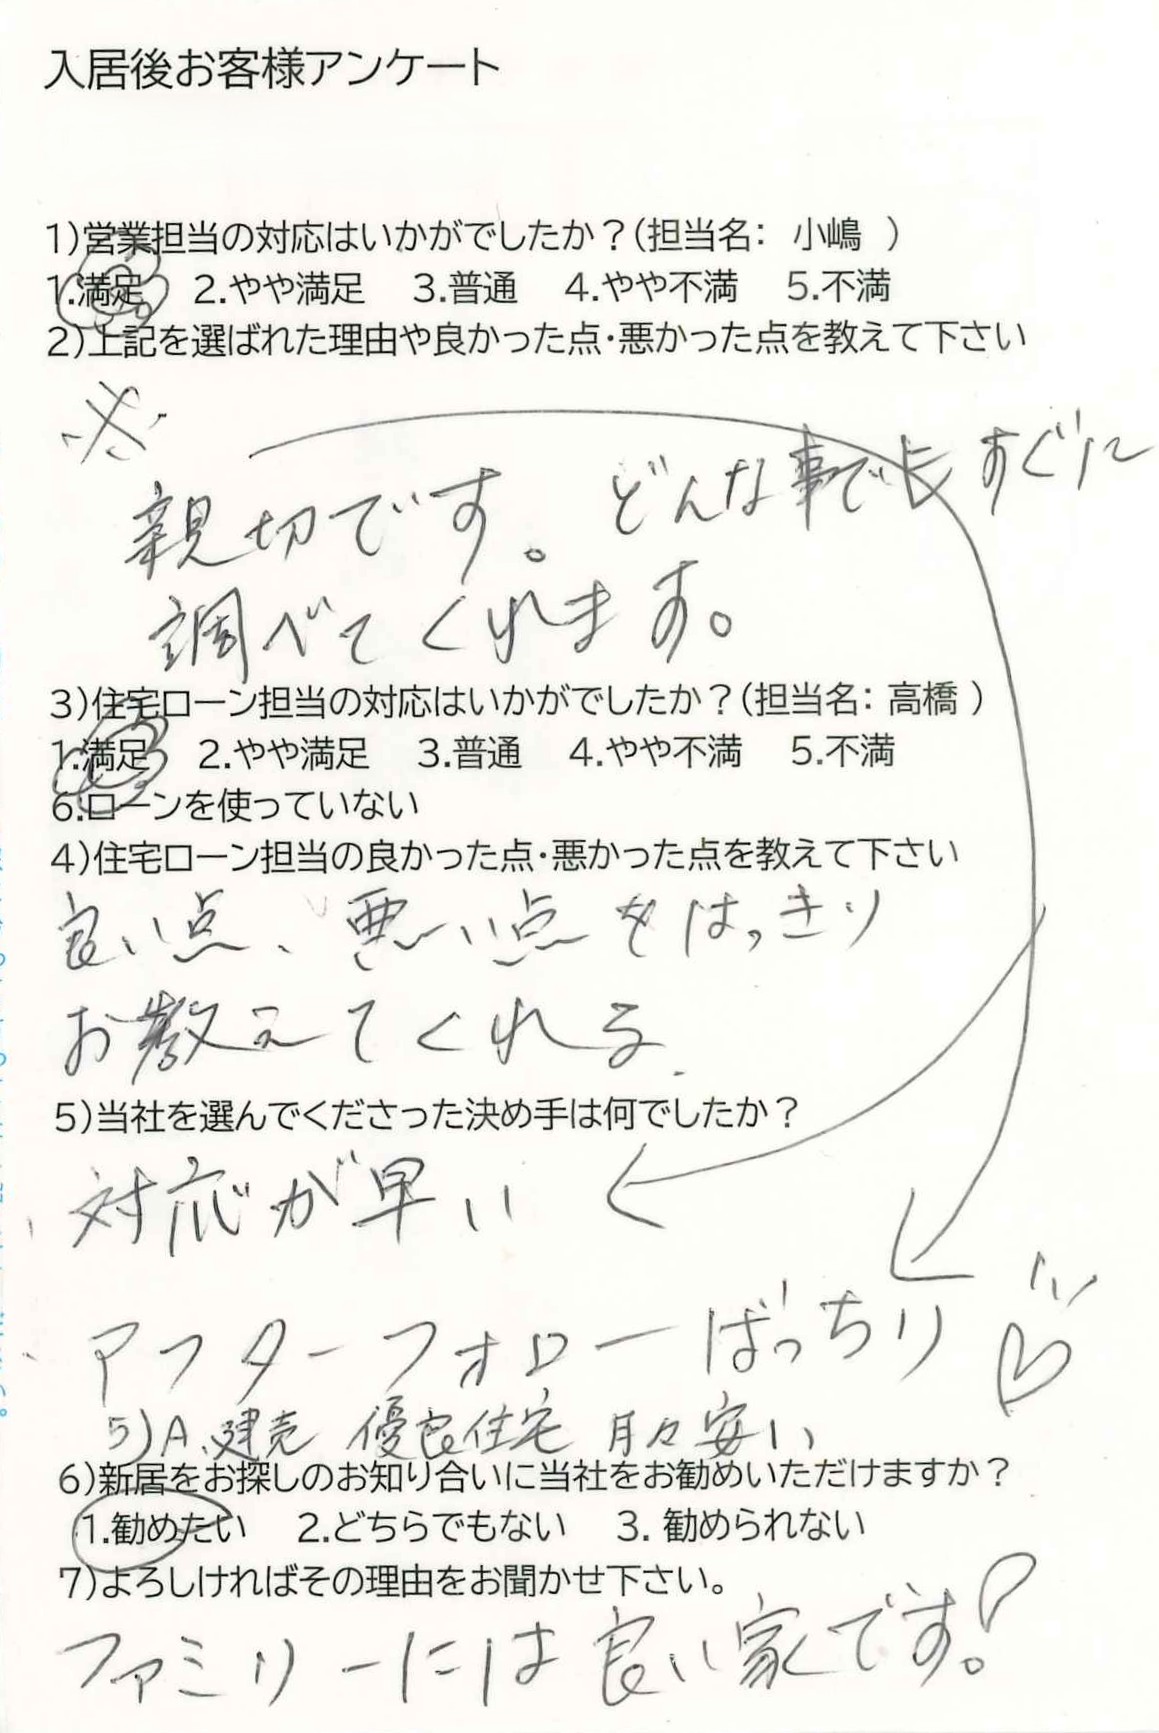 入居後お客様アンケート
1)営業担当の対応はいかがでしたか？(担当名： 小嶋 )
1.満足 2.やや満足 3.普通 4.やや不満 5.不満
2)上記を選ばれた理由や良かった点・悪かった点を教えて下さい
※
親切です。どんな事でもすぐに
調べてくれます。
3)住宅ローン担当の対応はいかがでしたか？(担当名： 高橋 )
1.満足 2.やや満足 3.普通 4.やや不満 5.不満
6.ローンを使っていない
4)住宅ローン担当の良かった点・悪かった点を教えて下さい
良い点、悪い点をはっきり
お教えてくれる.
5)当社を選んでくださった決め手は何でしたか？
対応が早い
アフターフォローばっちり♡
5)A、建売 優良住宅 月々安い
6)新居をお探しのお知り合いに当社をお勧めいただけますか？
1.勧めたい 2.どちらでもない 3. 勧められない
7)よろしければその理由をお聞かせ下さい。
ファミリーには良い家です。